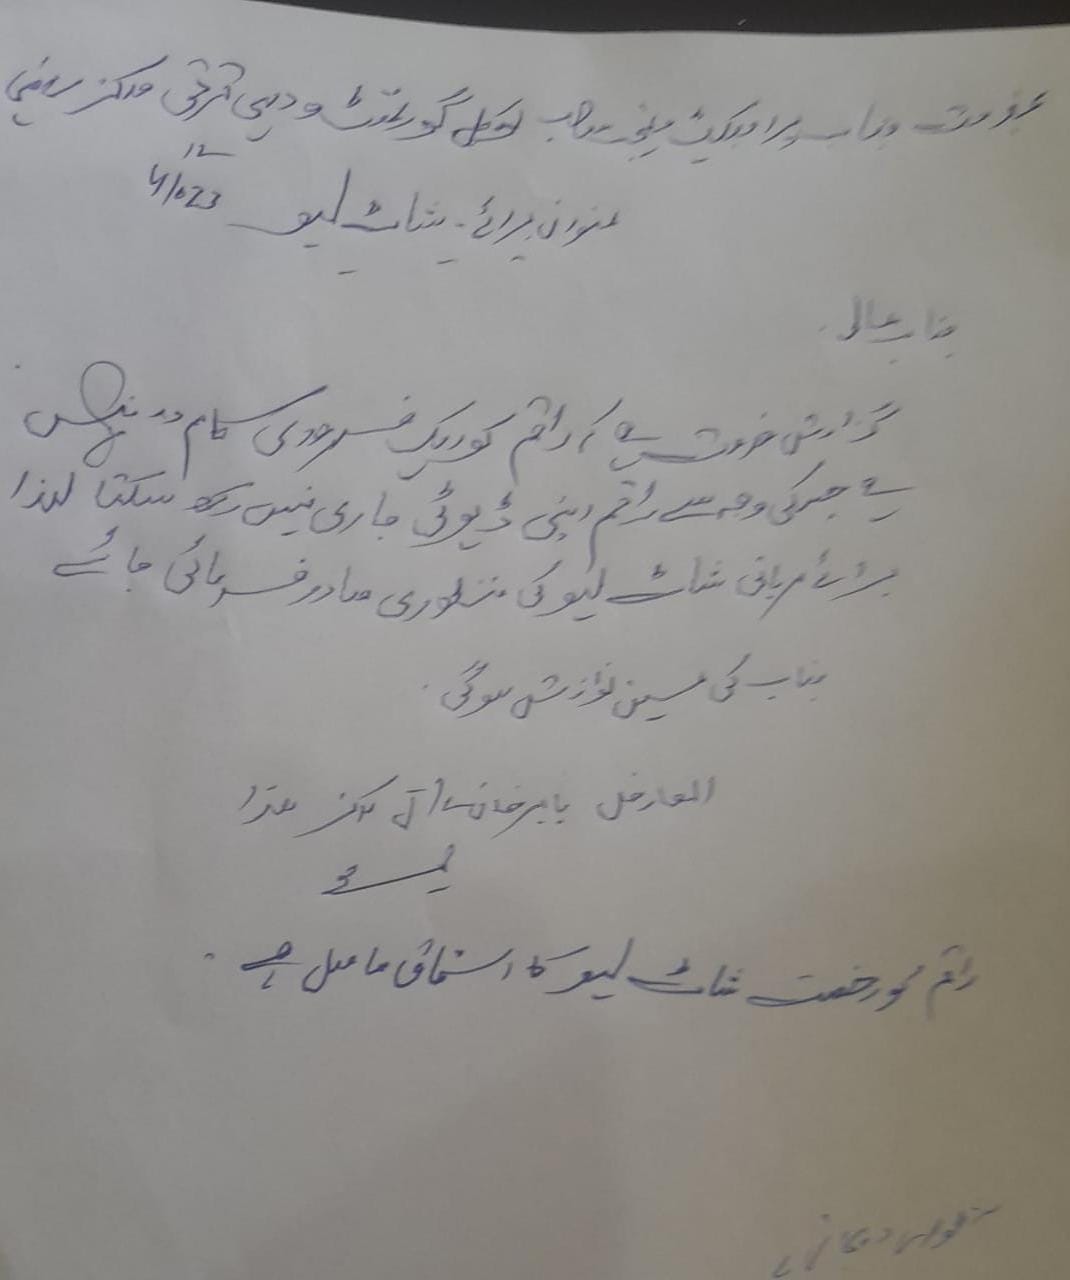 بخدمت جناب پراجیکٹ منیجر صاحب لوکل گورنمنٹ و دیہی ترقی مرکز
12
عنوان برائے ۔ شارٹ لیو
جناب عالی
گزارش خدمت ہے کہ راقم کو ایک ضروری کام درپیش
ہے جس کی وجہ سے راقم اپنی ڈیوٹی جاری نہیں رکھ سکتا لہذا
برائے مہربانی شارٹ لیو کی منظوری صادر فرمائی جائے
جناب کی عین نوازش ہوگی ۔
العارض بابر خان مرکز ھذا
راقم کو رخصت شارٹ لیو کا استحقاق حاصل ہے ۔